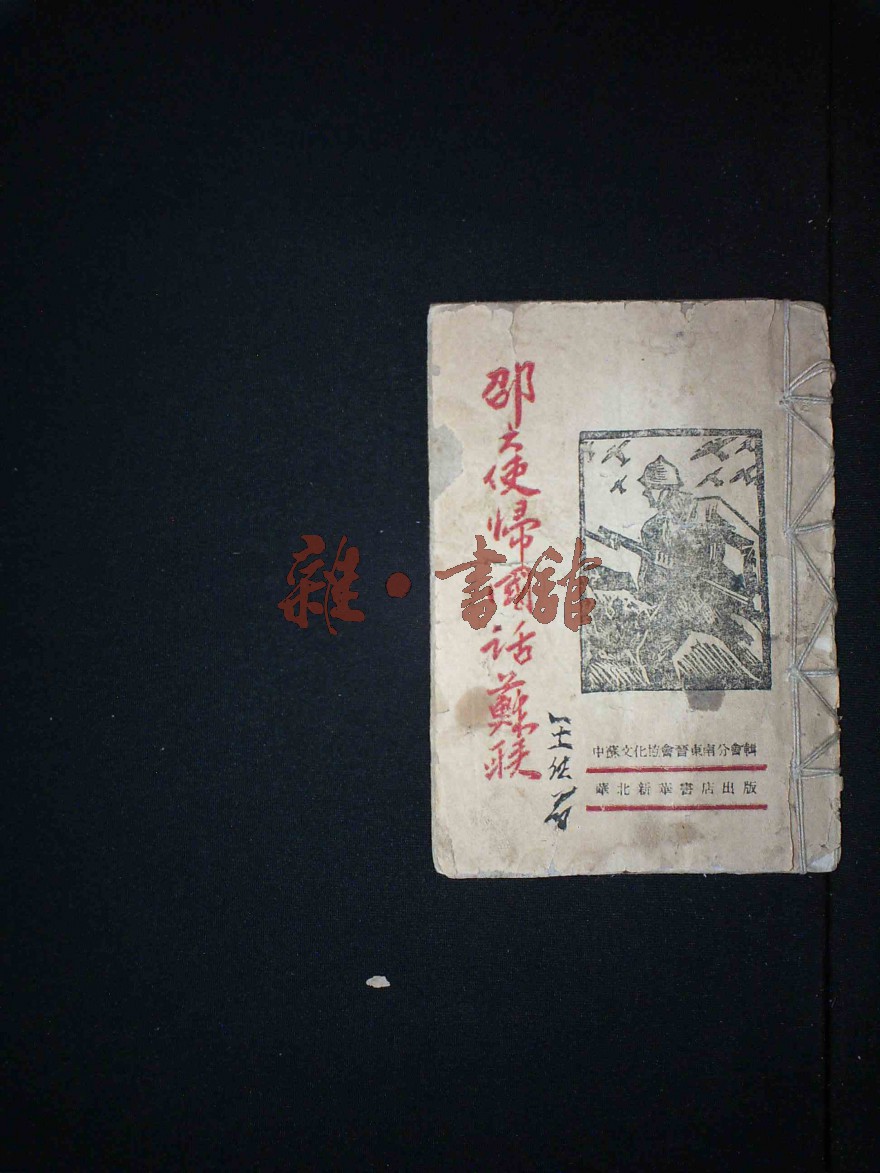 邵大使歸國話蘇联
中蘇文化協會晉東南分會輯
華北新華書店出版
雜·書館